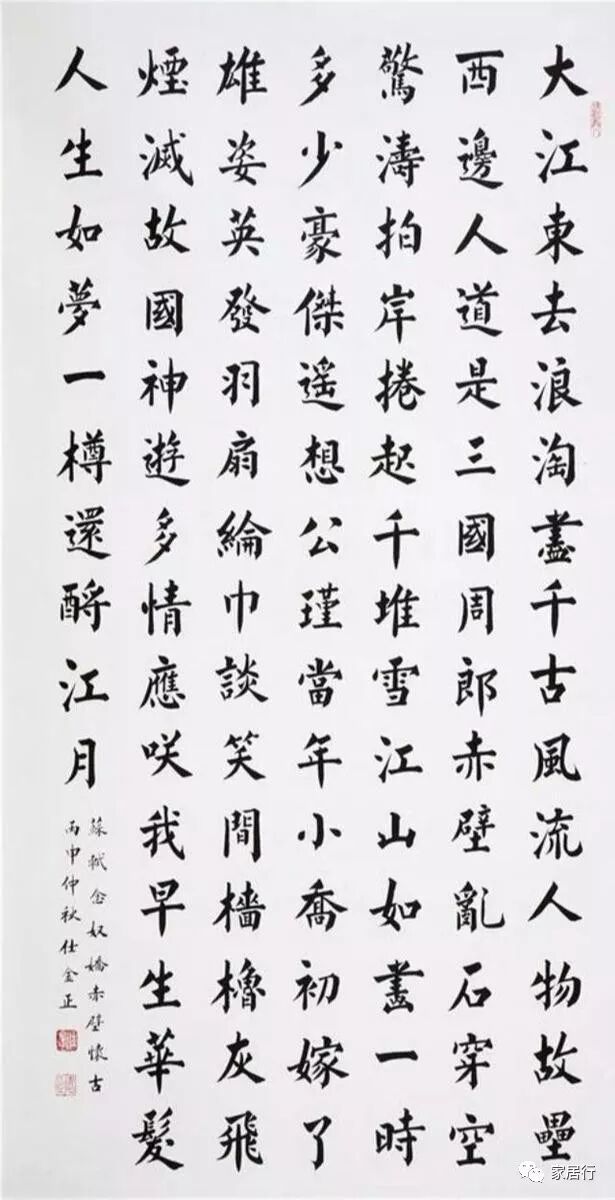 大江東去浪淘盡千古風流人物故壘
西邊人道是三國周郎赤壁亂石穿空
驚濤拍岸捲起千堆雪江山如畫一時
多少豪傑遥想公瑾當年小喬初嫁了
雄姿英發羽扇綸巾談笑間檣櫓灰飛
煙滅故國神遊多情應咲我早生華髮
人生如夢一樽還酹江月
蘇軾念奴嬌赤壁懷古
丙申仲秋仕金正
家居行